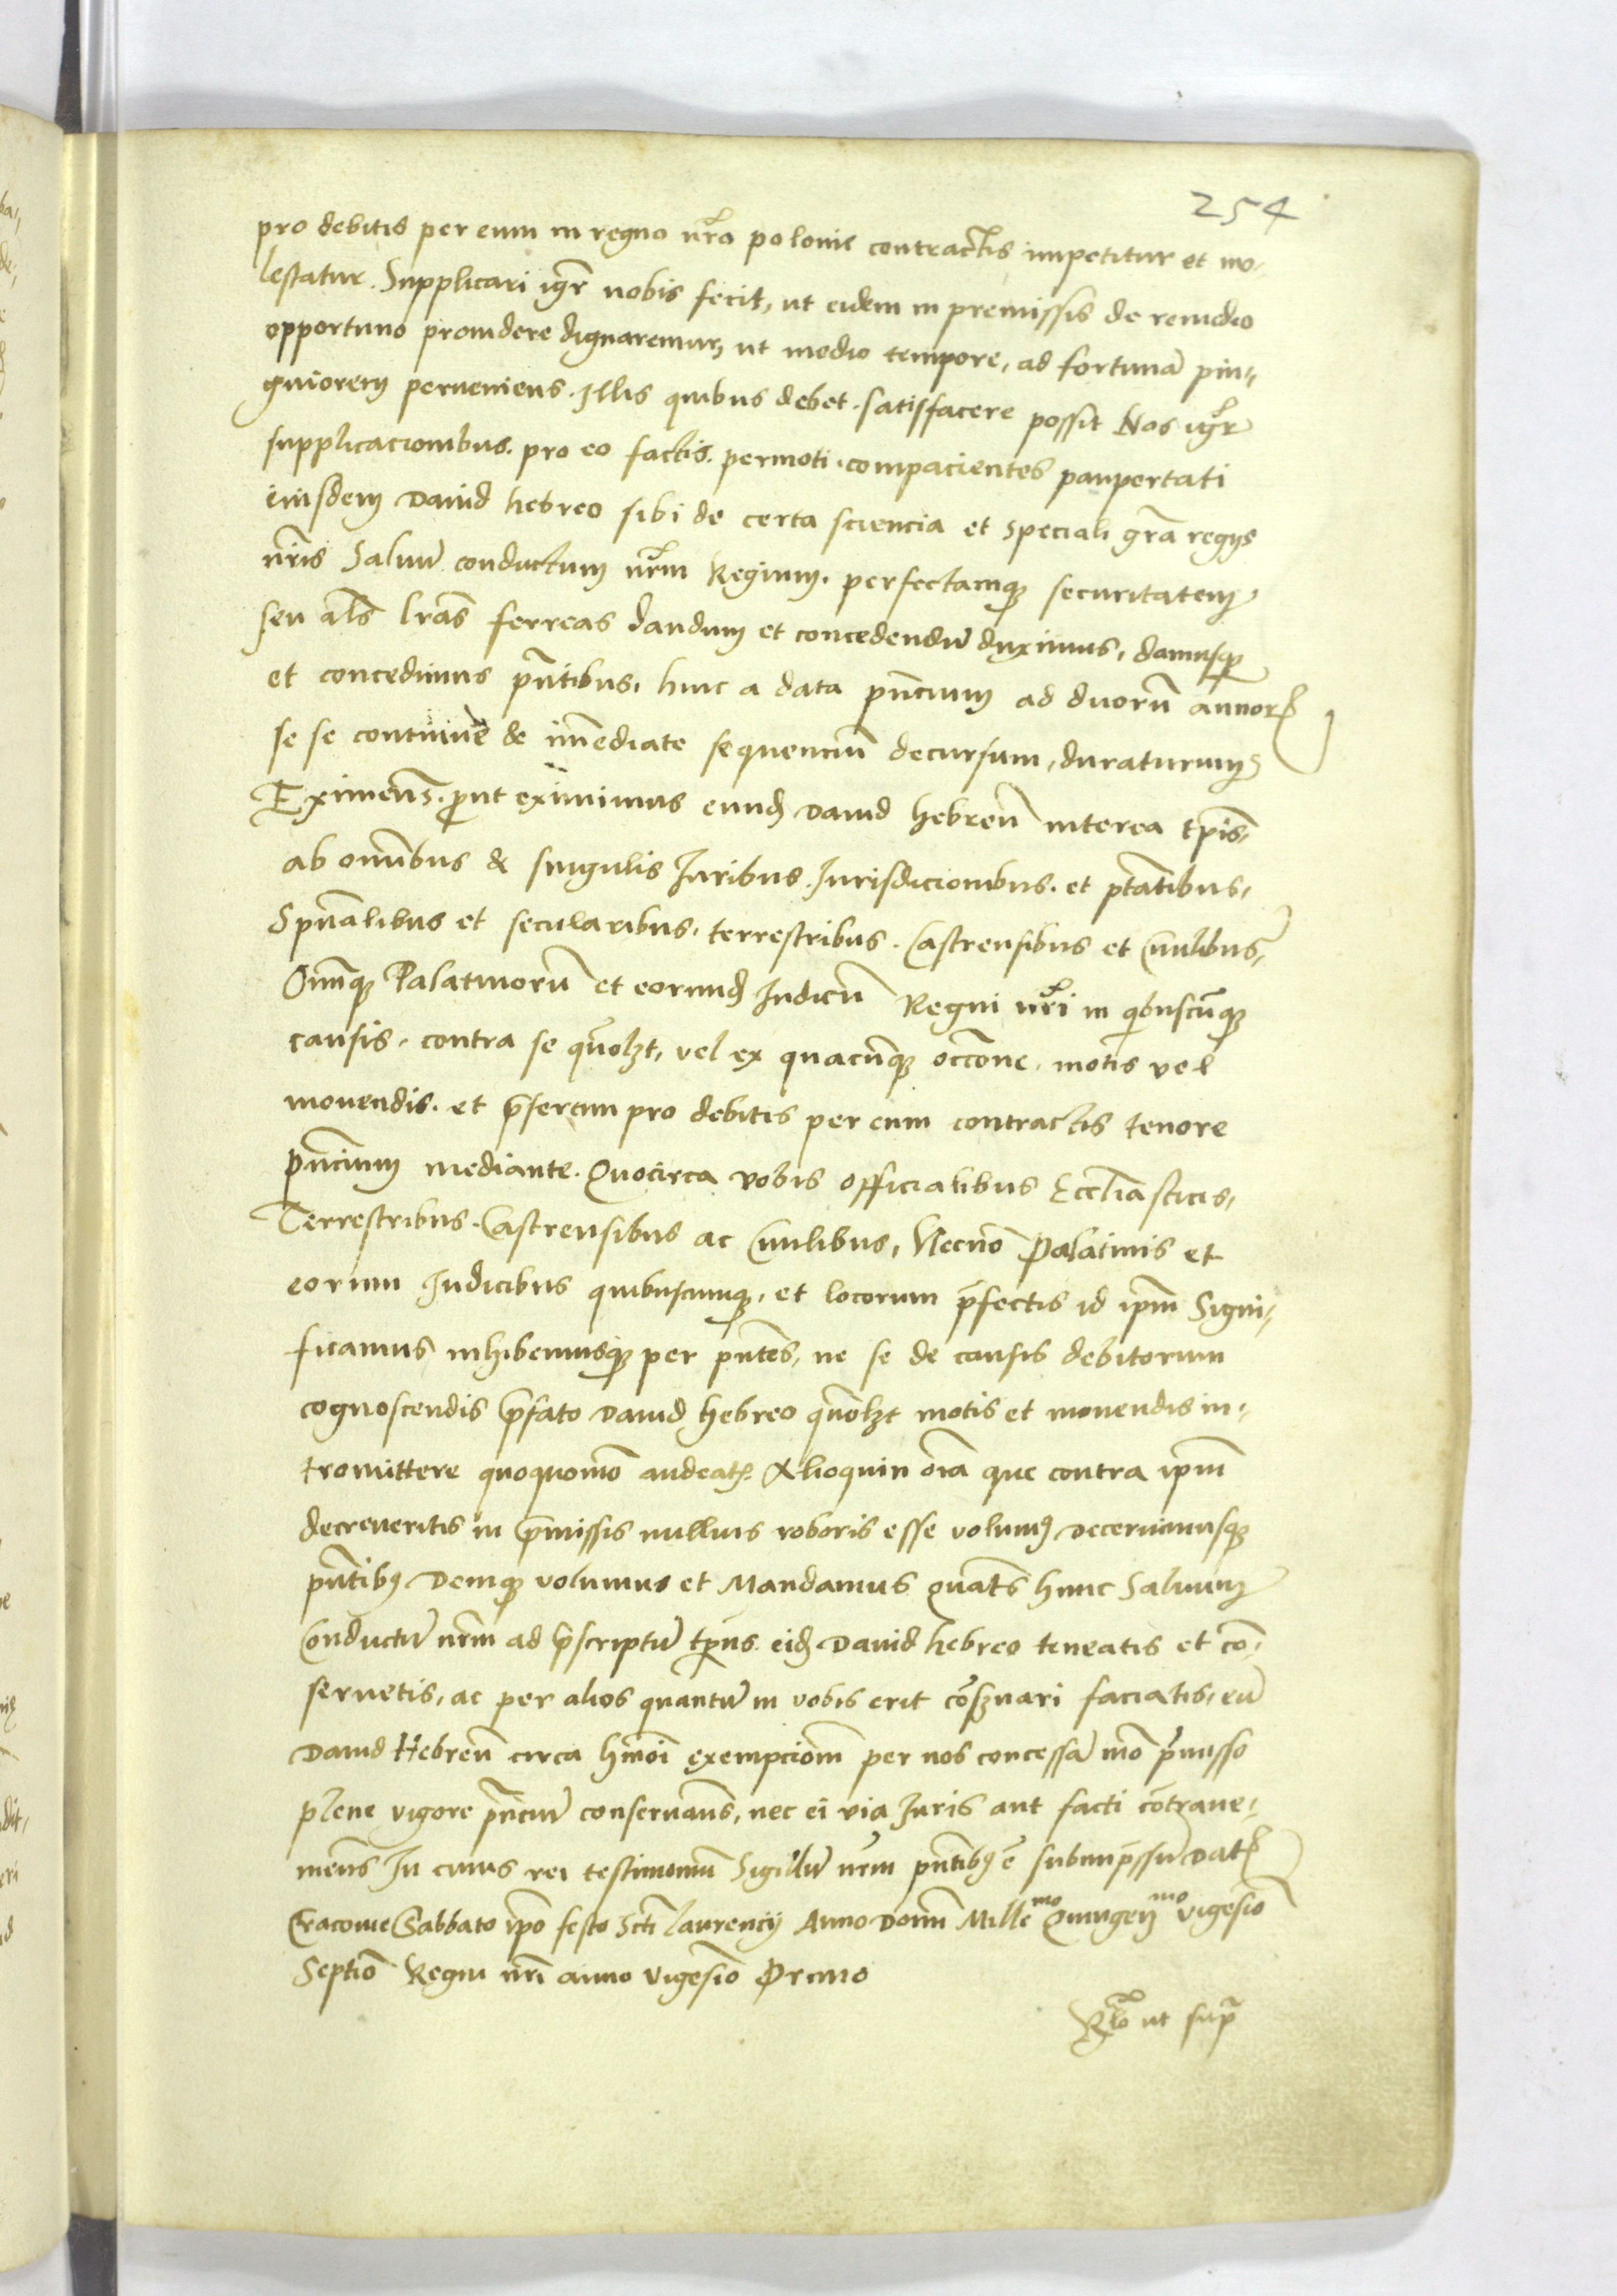 254
pro debitis per eum in regno nr̃o polonie contractis impetitur et mo-
lestatur. Supplicari igr̃ nobis fecit, ut eidem in premissis de remedio
opportuno prouidere dignaremur, ut medio tempore, ad fortunã pin-
guiorem perueniens. Illis quibus debet. satisfacere possit Nos igr̃
supplicacionibus. pro eo factis. permoti. compacientes paupertati
eiusdem Dauid hebreo sibi de certa sciencia et speciali grã regys
nr̃is Saluũ conductum nr̃m Regium. perfectamq; securitatem
seu als̃ lrãs ferreas dandum et concedendũ duximus, damusq;
et concedimus pñtibus, hinc a data pñcium ad duorũ annor̃
se se continue & im̃ediate sequenciũ decursum, duraturum
Eximens. prout eximimus eund̃ Dauid hebreũ interea tpĩs
ab omnibus & singulis Iuribus. Iurisdicionibus. et ptãtibus,
Spũalibus et secularibus, terrestribus. Castrensibus et Ciuilibus,
Om̃iq; Palatinorũ et eorund̃ Iudicũ Regni nr̃i in qibuscũq;
causis. contra se quõlzt, vel ex quacũq; occõne. motis vel
mouendis. et p̃sertim pro debitis per eum contractis tenore
pñcium mediante. Quocirca vobis officialibus Eccl̃iasticis,
Terrestribus. Castrensibus ac Ciuilibus, Necnõ Palatinis et
eorum Iudicibus quibuscumq;, et locorum p̃fectis id ipm̃ Signi-
ficamus inhibemusq; per pñtes, ne se de causis debitorum
cognoscendis p̃fato Dauid hebreo quõlzt motis et mouendis in-
tromittere quoquomõ audeat̃. Alioquin oĩa que contra ipm̃
decreueritis in p̃missis nullius roboris esse volum9 Decernimusq;
pñtib9 Deniq; volumus et Mandamus quatñs hunc Saluum
Conductũ nr̃m ad p̃scriptũ tp̃us eid̃ Dauid hebreo teneatis et cõ-
seruetis, ac per alios quantũ in vobis erit cõseruari faciatis, eũ
Dauid Hebreũ circa hm̃oi exempcionm̃ per nos concessã mõ p̃misso
plene vigore pñciũ conseruañs, nec ei via Iuris aut facti cõtraue-
nieñs In cuius rei testimoniũ Sigillũ nr̃m pñtib9 ẽ subimp̃ssũ Dat̃
Cracouie Sabbato ipõ festo Scti Laurencij Anno Domĩ Millemo Quingenmo vigesiõ
Septiõ Regni nr̃i anno vigesiõ Primo
Rl̃o ut sup̃